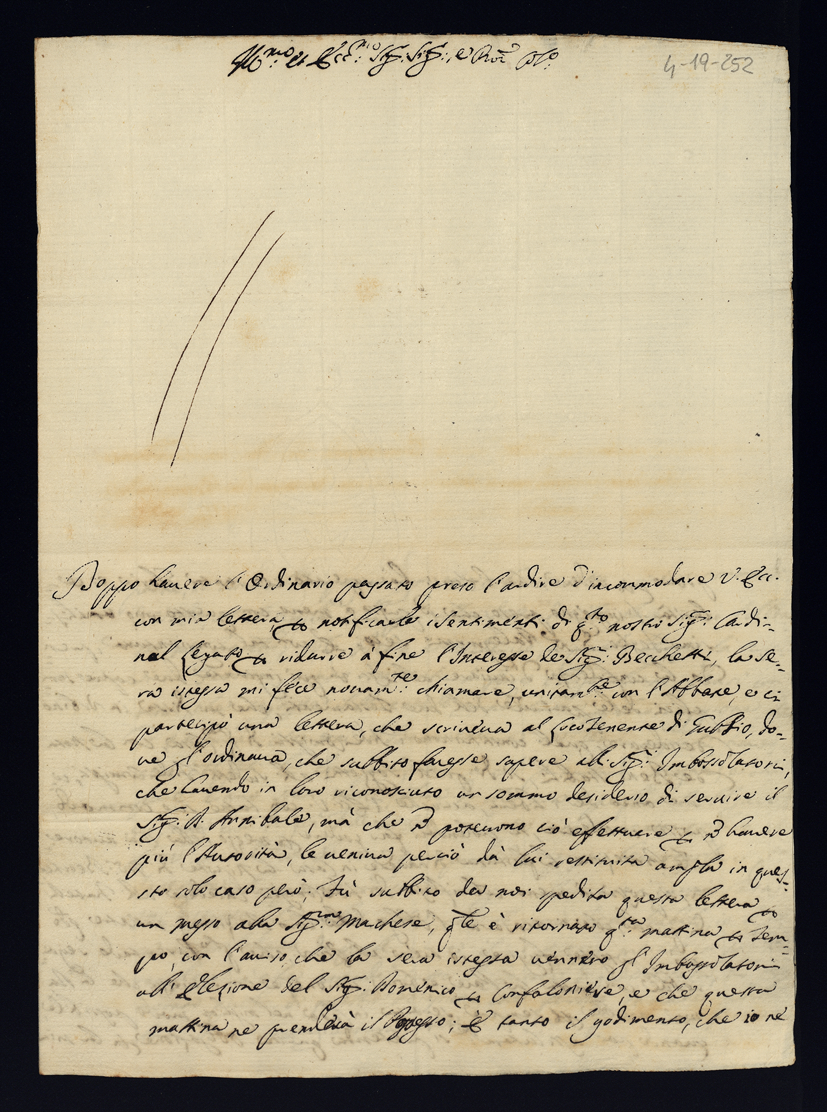 Ill.mo et Ecc.mo Sig.r Sig.r, e Pron. Col.mo
4-19-252
Doppo hauere l'Ordinario passato preso l'ardire d'incommodare V. Ecc.
con mia lettera, p notificarle i sentimenti di q.sto nostro Sig.r Cardi-
nal Legato p ridurre à fine l'Interesse de Sig.ri Becchetti, la se-
ra istessa mi fece nouam.te chiamare, unitam.te con l'Abbate, e ci
partecipò una lettera, che scriueua al Locotenente di Gubbio, do-
ue gl'ordinaua, che subbito facesse sapere alli Sig.ri Imbossolatori,
che hauendo in loro riconosciuto un sommo desiderio di seruire il
Sig.r D. Annibale, mà che ñ poteuono ciò effettuare p ñ hauere
più l'Autorità, le ueniua perciò dà lui restituita ampla in ques-
sto solo caso però; Fù subbito da noi spedita questa lettera p
un messo alla Sig.ra Marchese, q.le è ritornato q.sta mattina p tem-
po, con l'auiso, che la sera istessa uennero gl'Imbossolatori
all'Elezione del Sig.r Domenico p Confaloniere, e che questa
mattina ne prenderà il Possesso; È tanto il godimento, che io ne